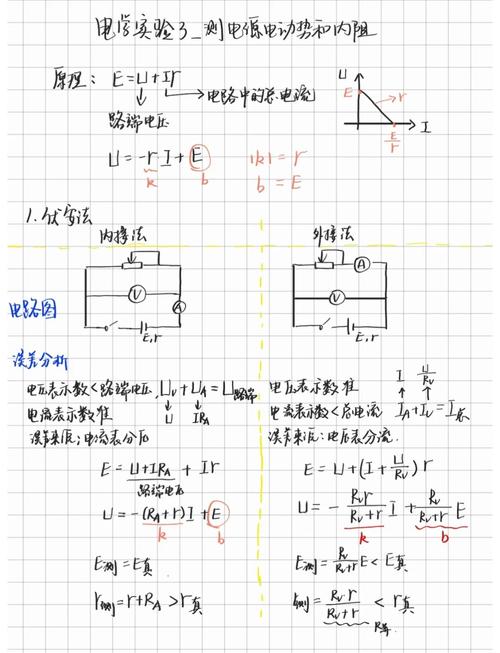 电学实验3_测电源电动势和内阻
原理: E=U+Ir
→电路中的总电流
路端电压
U=-rI+E
k b
|k|=r
b=E
U
E
r
I
E/r
1.伏安法
内接法
外接法
V
A
E,r
A
V
E,r
电路图
误差分析
电压表示数<路端电压, U_V+U_A=U路端
U IR_A
电流表示数准
误差来源:电流表分压
E=U+IR_A+Ir
路端电压
U=-(R_A+r)I+E
k b
E测=E真
r测=r+R_A>r真
电压表示数准
I U/R_V
电流表示数<总电流 I_A+I_V=I总
误差来源:电压表分流.
E=U+(I+U/R_V)r
U=-R_V r/(R_V+r) I+R_V/(R_V+r) E
k b
E测=R_V/(R_V+r) E<E真
r测=R_V·r/(R_V+r)<r真